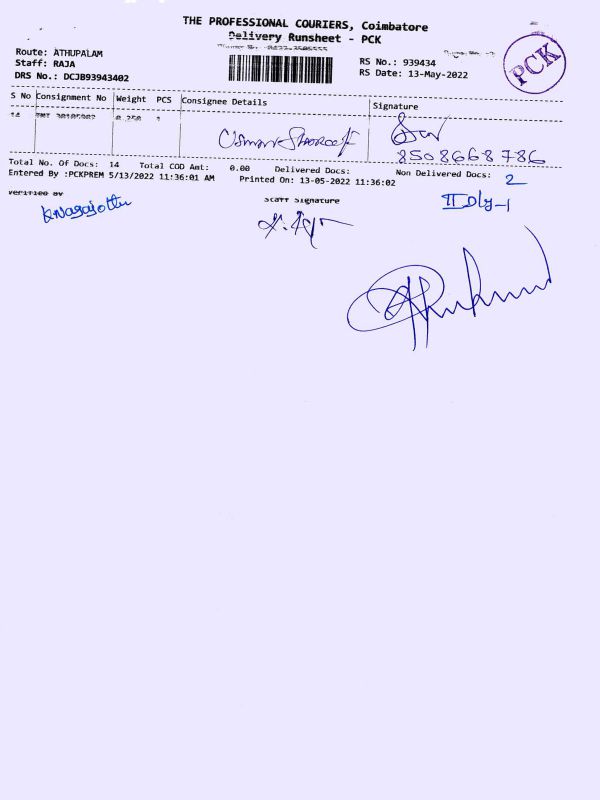 THE PROFESSIONAL COURIERS, Coimbatore
Delivery Runsheet - PCK
Route: ATHUPALAM
Staff: RAJA
DRS No.: DCJB93943402
RS No.: 939434
RS Date: 13-May-2022
PCK
S No Consignment No Weight PCS Consignee Details Signature
14 0.250 1
8508668786
Total No. Of Docs: 14 Total COD Amt: 0.00 Delivered Docs: Non Delivered Docs: 2
Entered By :PCKPREM 5/13/2022 11:36:01 AM Printed On: 13-05-2022 11:36:02
Verified By Staff Signature
II Dly-1